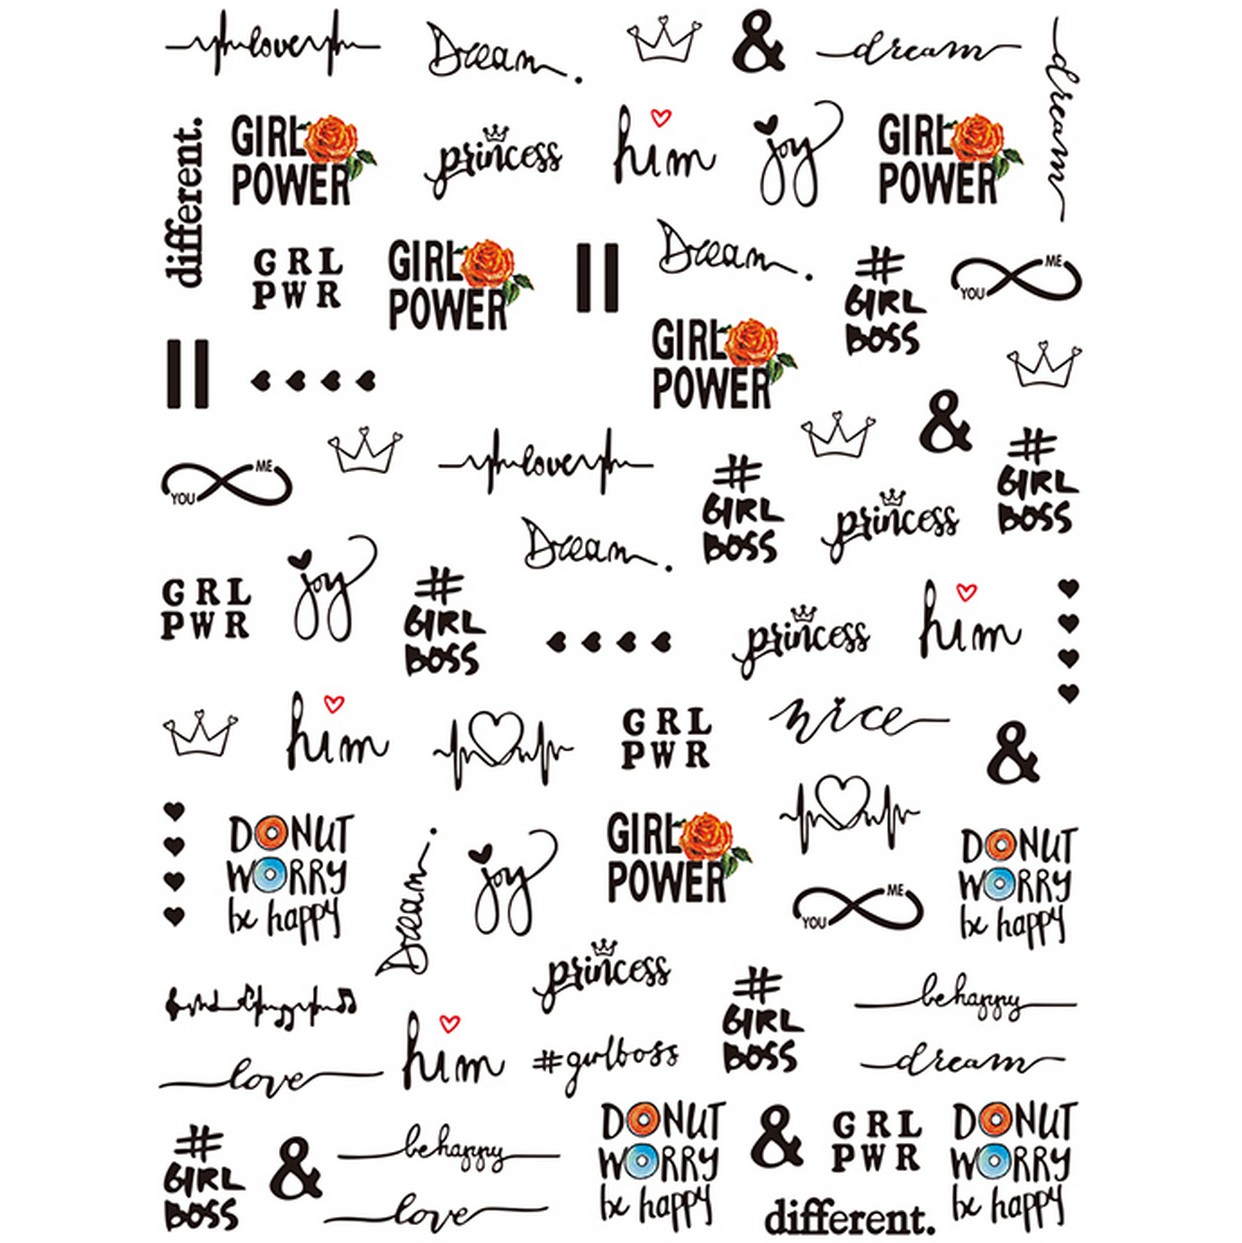 love
Dream.
&
dream
dream
different.
GIRL
POWER
princess
him
joy
GIRL
POWER
GRL
PWR
GIRL
POWER
Dream.
#
GIRL
BOSS
YOU
ME
GIRL
POWER
&
YOU
ME
love
#
GIRL
BOSS
princess
#
GIRL
BOSS
Dream.
GRL
PWR
joy
#
GIRL
BOSS
princess
him
him
GRL
PWR
nice
&
DONUT
WORRY
be happy
Dream.
joy
GIRL
POWER
YOU
ME
DONUT
WORRY
be happy
princess
#
GIRL
BOSS
be happy
love
him
#girlboss
dream
#
GIRL
BOSS
&
be happy
love
DONUT
WORRY
be happy
&
GRL
PWR
different.
DONUT
WORRY
be happy